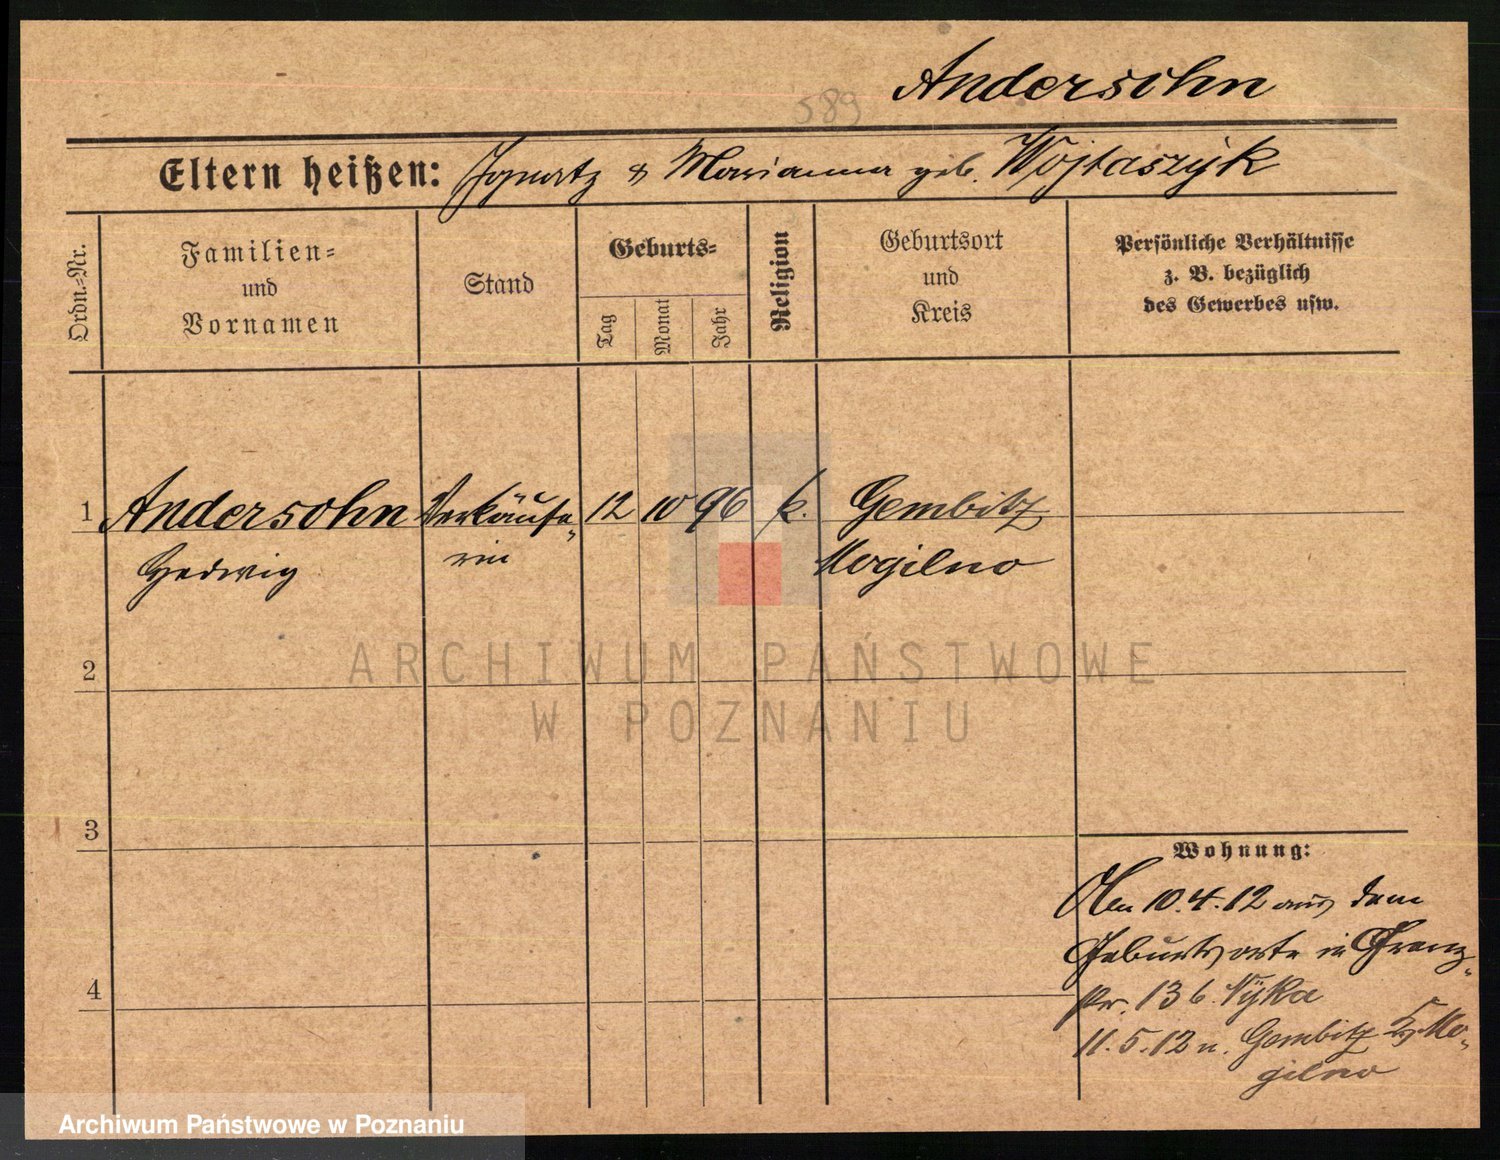 Andersohn
589
Eltern heißen: Ignatz & Marianna geb. Wojtaszyk
Ordn.-Nr.
Familien-
und
Vornamen
Stand
Geburts-
Tag
Monat
Jahr
Religion
Geburtsort
und
Kreis
Persönliche Verhältnisse
z. B. bezüglich
des Gewerbes usw.
1 Andersohn Verkäufe- 12 10 96 k. Gembitz
Hedwig rin Mogilno
ARCHIWUM PAŃSTWOWE
W POZNANIU
2
3
4
Wohnung:
Am 10.4.12 aus dem
Geburtsorte in Grenz-
str. 13 b. Nyka
11.5.12 n. Gembitz Kr. Mo-
gilno
Archiwum Państwowe w Poznaniu